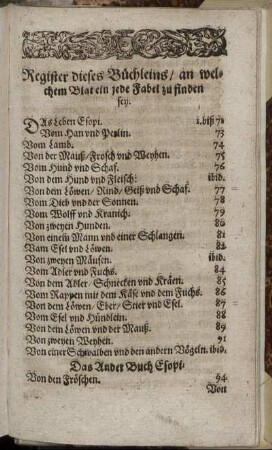 Register dieses Büchleins/ an wel-
chem Blat ein jede Fabel zu finden
sey.
DAs Leben Esopi. 1. biß 72
Vom Han vnd Perlin. 73
Vom Lamb. 74
Von der Mauß/ Frosch vnd Weyhen. 75
Vom Hund vnd Schaf. 76
Von dem Hund vnd Fleisch: ibid.
Von dem Löwen/ Rind/ Geiß vnd Schaf. 77
Vom Dieb vnd der Sonnen. 78
Vom Wolff vnd Kranich. 79
Von zweyen Hunden. 80
Von einem Mann vnd einer Schlangen. 81
Vam Esel vnd Löwen. 82
Von zweyen Mäusen. ibid.
Vom Adler vnd Fuchs. 84
Von dem Adler/ Schnecken vnd Kräen. 85
Vom Rappen mit dem Käse vnd dem Fuchs. 86
Von dem Löwen/ Eber/ Stier vnd Esel. 87
Vom Esel vnd Hündlein. 88
Von dein Löwen vnd der Mauß. 89
Von zweyen Weyhen. 91
Von einer Schwalben vnd den andern Vögeln. ibid.
Das Ander Buch Esopi.
Von den Fröschen. 94
Von